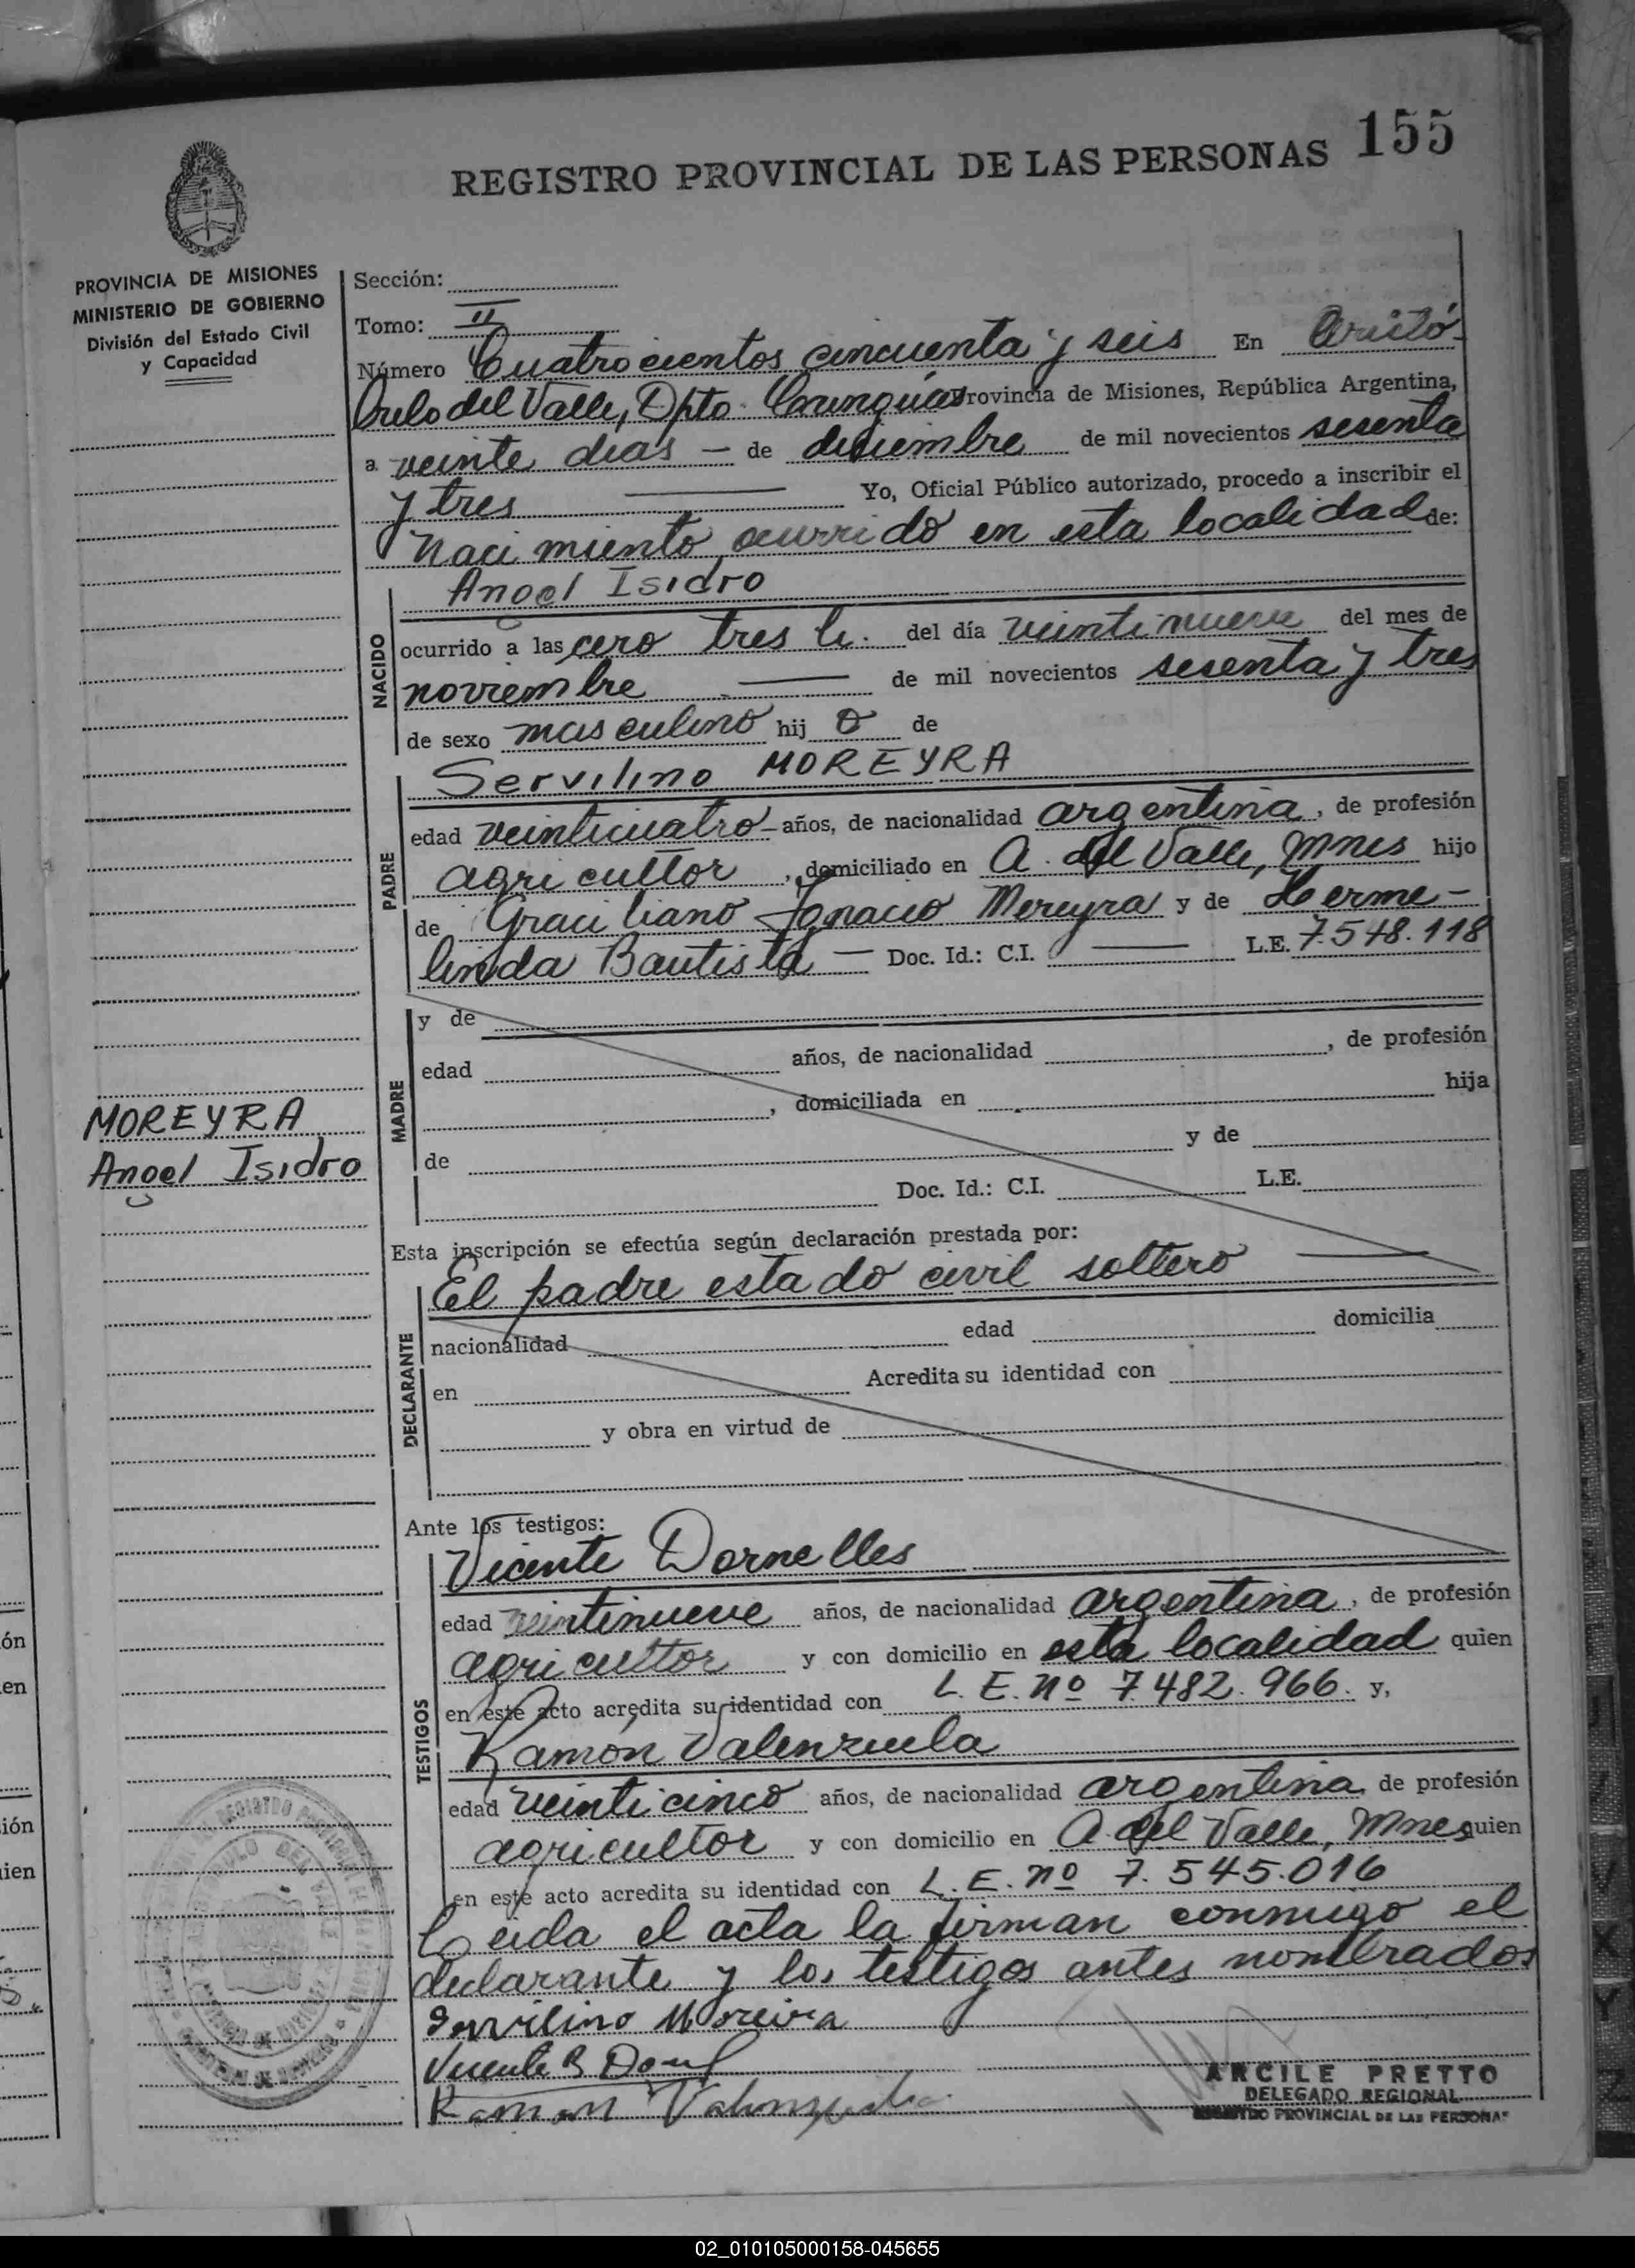 155
REGISTRO PROVINCIAL DE LAS PERSONAS
PROVINCIA DE MISIONES
MINISTERIO DE GOBIERNO
División del Estado Civil
y Capacidad
Sección:
Tomo: II
Número Cuatrocientos cincuenta y seis En Aristó-
bulo del Valle, Dpto. Caingúas Provincia de Misiones, República Argentina,
a veinte días — de diciembre de mil novecientos sesenta
y tres — Yo, Oficial Público autorizado, procedo a inscribir el
Nacimiento ocurrido en esta localidad de:
NACIDO
Angel Isidro
ocurrido a las cero tres h. del día veintinueve del mes de
noviembre — de mil novecientos sesenta y tres
de sexo masculino hij o de
PADRE
Servilino MOREYRA
edad veinticuatro - años, de nacionalidad argentina, de profesión
agricultor, domiciliado en A. del Valle, Mnes hijo
de Graciliano Ignacio Mereyra y de Herme-
linda Bautista — Doc. Id.: C.I. — L.E. 7.548.118
MADRE
y de
edad años, de nacionalidad , de profesión
, domiciliada en hija
de y de
Doc. Id.: C.I. L.E.
MOREYRA
Angel Isidro
Esta inscripción se efectúa según declaración prestada por:
DECLARANTE
El padre estado civil soltero —
nacionalidad edad domicilia
en Acredita su identidad con
y obra en virtud de
Ante los testigos:
TESTIGOS
Vicente Dornelles
edad veintinueve años, de nacionalidad argentina, de profesión
agricultor y con domicilio en esta localidad quien
en este acto acredita su identidad con L. E. nº 7.482.966. y,
Ramón Valenzuela
edad veinticinco años, de nacionalidad argentina de profesión
agricultor y con domicilio en A. del Valle, Mnes quien
en este acto acredita su identidad con L. E. nº 7.545.016
Leida el acta la firman conmigo el
declarante y los testigos antes nombrados
Servilino Moreira
Vicente B
Ramon Valenzuela
ARCILE PRETTO
DELEGADO REGIONAL
REGISTRO PROVINCIAL DE LAS PERSONAS
ón
en
ión
uien
02_010105000158-045655